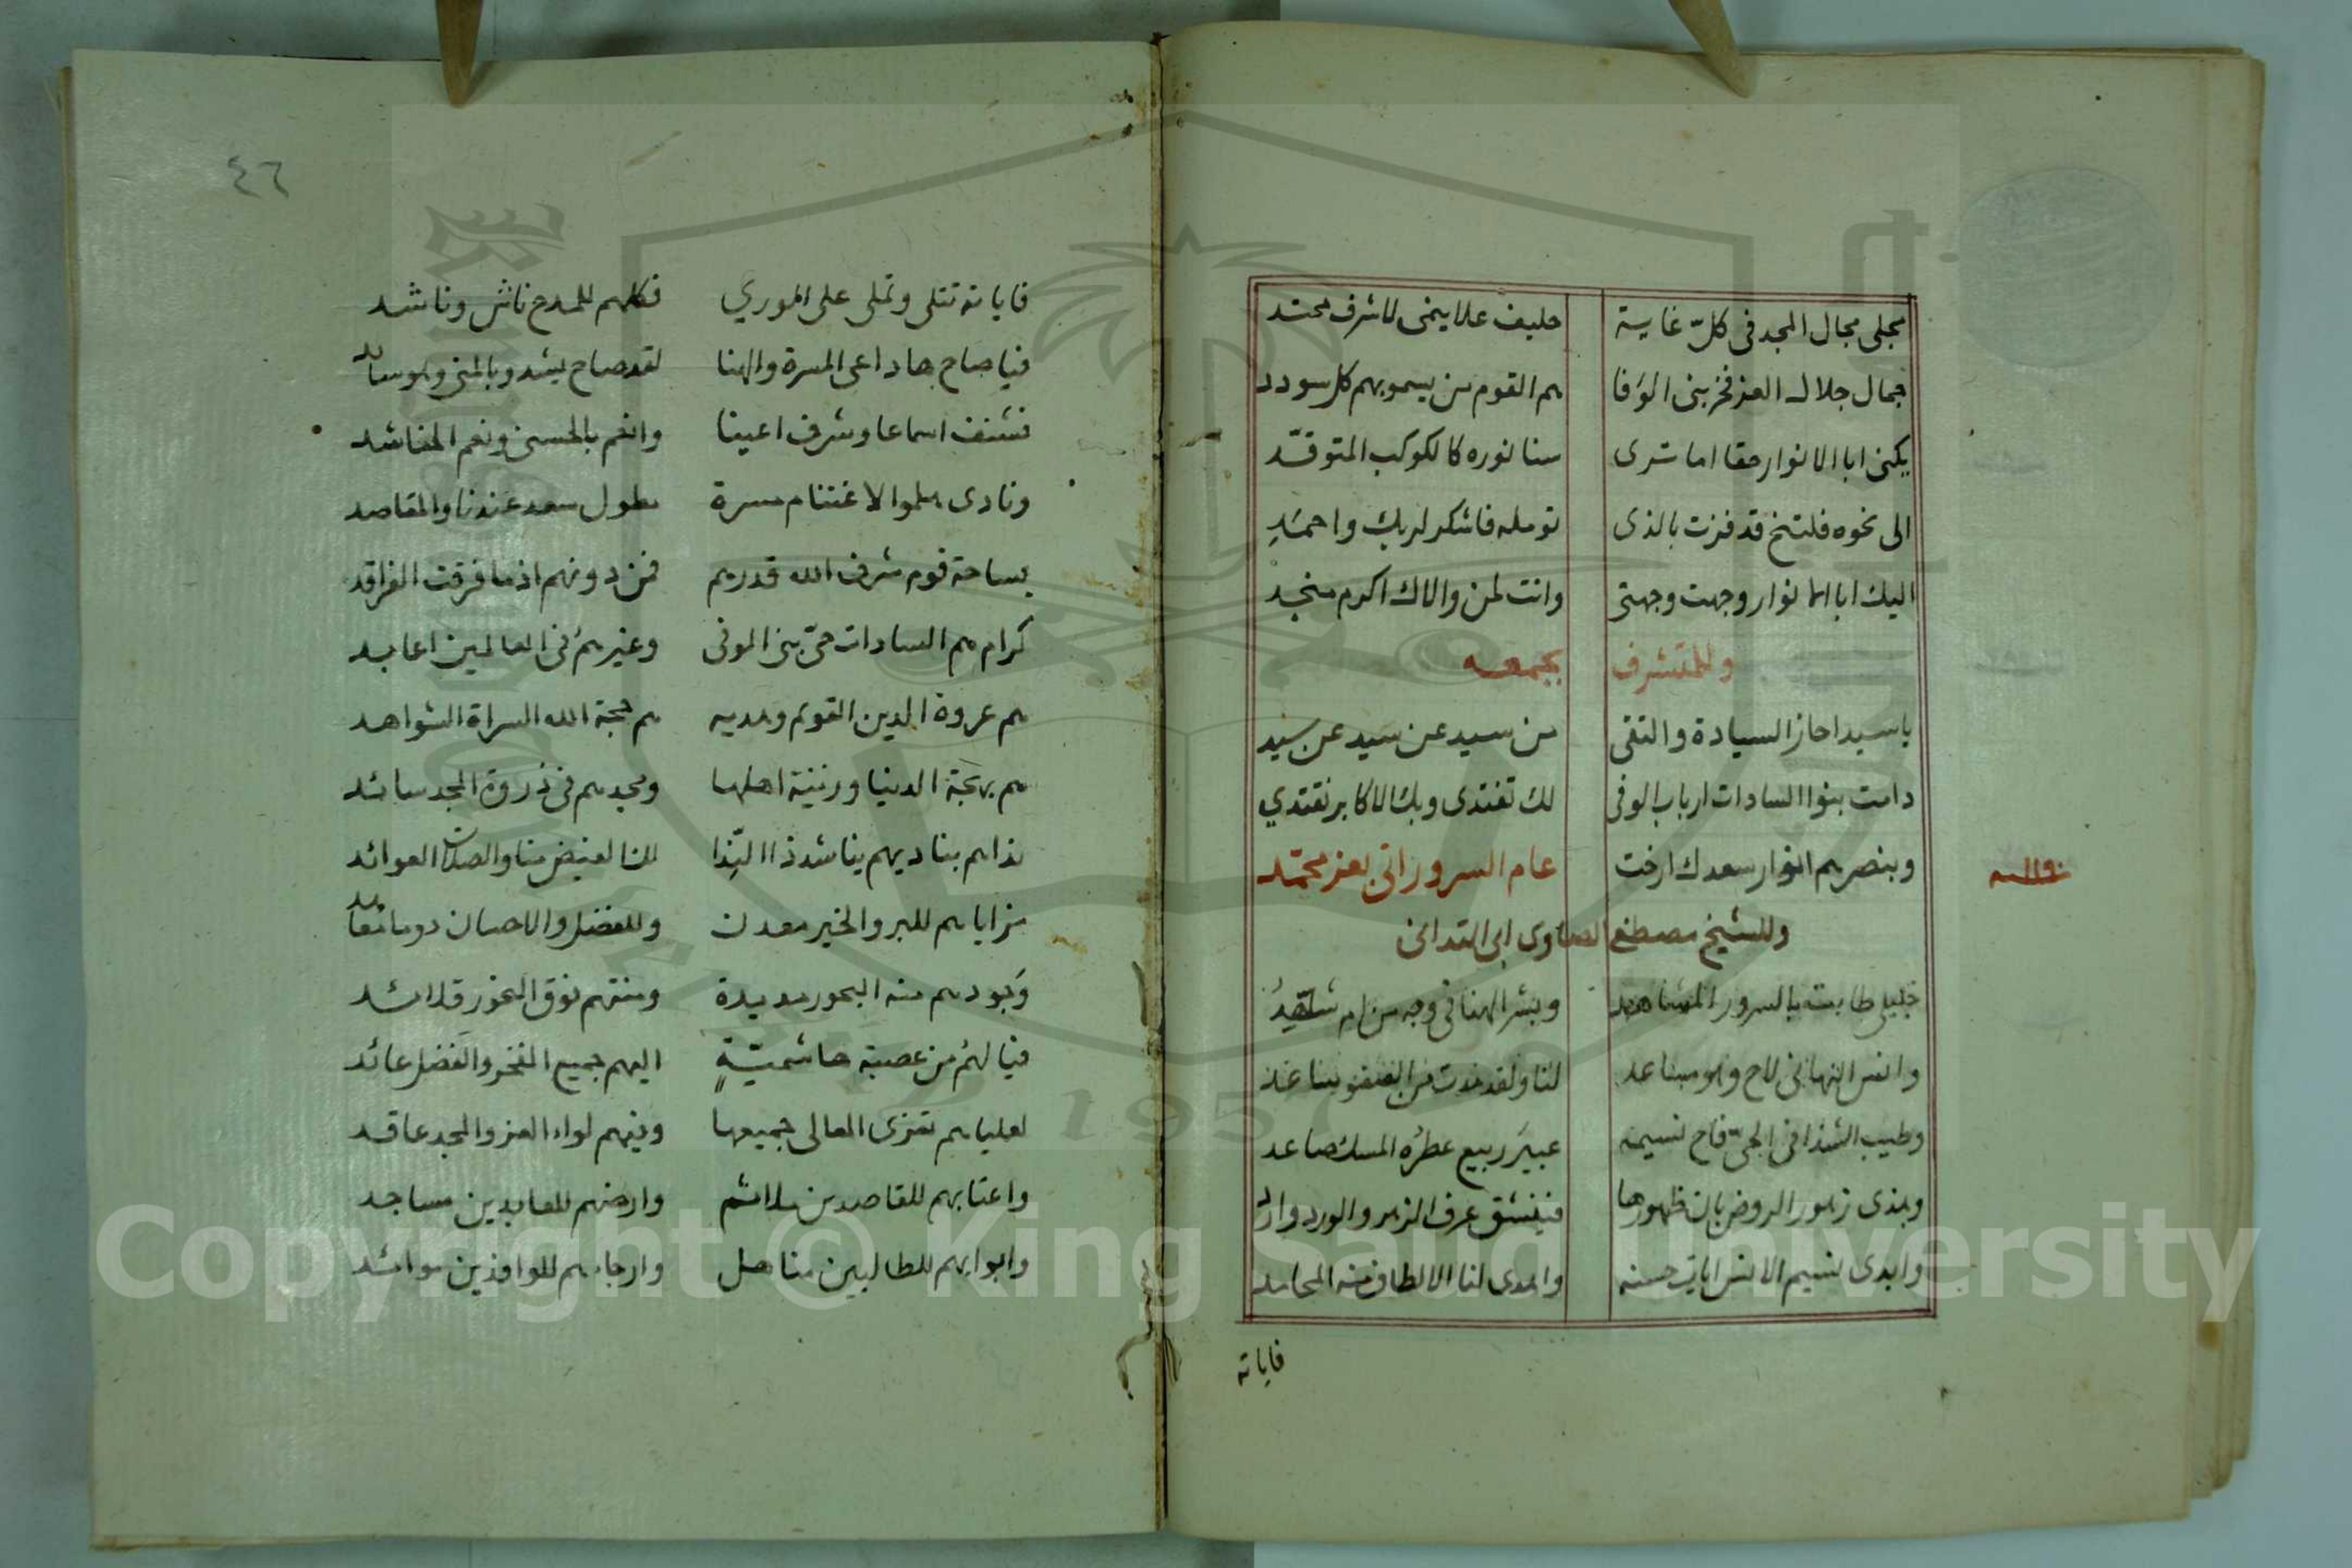 مجلى مجال المجد فى كلّ غاية حليف علا ينمى لاشرف محتد
جمال جلال العز فخر بنى الوفا هم القوم من يسمو بهم كل سودد
يكنى ابا الانوار حقا اما ترى سنا نوره كالكوكب المتوقّد
الى نحوه فلتنخ قد فزت بالذى تومله فاشكر لربك واحمدِ
اليك ابا الانوار وجهت وجهتى وانت لمن والاك اكرم منجد
وللمتشرف بجمعه
ياسيدا حاز السيادة والتقى من سيد عن سيد عن سيد
دامت بنوا السادات ارباب الوفى لك تفتدى وبك الاكابر تقتدي
وبنصرهم انوار سعدك ارخت عام السرور اتى بعز محمّد
وللشيخ مصطفى الصاوى
خليلى طابت بالسرور المشاهد وبشر الهنا فى وجه من ام شاهدُ
وانس التهانى لاح وهو مساعد لنا ولقد
وطيب الشذا فى الحىّ فاح نسيمه عبيرَ ربيع عطرُه المسك صاعد
وهذى زهور الروض بان ظهورها فينشق عرف الزهر والورد وارد
وابدى نسيم الانس ايات حسنه واهدى لنا الالطاف منه المحامد
فاياته
٤٦
فاياته تتلى وتملى على الورى فكلهم للمدح ناش وناشد
فياصاح ها داعى المسرة والهنا لقد صاح يشدو بالمنى وهو سائد
فشنف اسماعا وشرف اعينا وانعم بالحسنى ونعم المناشد
ونادى هلموا لاغتنام مسرة بطول سعد عندنا والمقاصد
بساحة قوم شرف الله قدرهم فمن دونهم اذ ما فرقت الفراقد
كرام هم السادات حىّ بنى الوفى وغيرهمُ فى العالمين اعابد
هم عروة الدين القويم وهديه هم حجة الله السراة الشواهد
هم بهجة الدنيا وزينة اهلها ومجدهم فى ذروة المجد سائد
نداهم بناديهم يناشد ذا الندا لنا الفيض منا والصلات العوائد
مزاياهم للبر والخير معدن وللفضل والاحسان دوما
وجودهم منه البحور مديدة ومنتهم فوق النحور قلائد
فيا لهمُ من عصبة هاشميّةٍ اليهم جميع الفخر والفضل عائد
لعلياهم تعزى المعالى جميعها وفيهم لواء العز والمجد عاقد
واعتابهم للقاصدين ملاثم وارضهم للعابدين مساجد
وابوابهم للطالبين مناهل وارجاهم للوافدين موائد
Copyright © King Saud University
1957